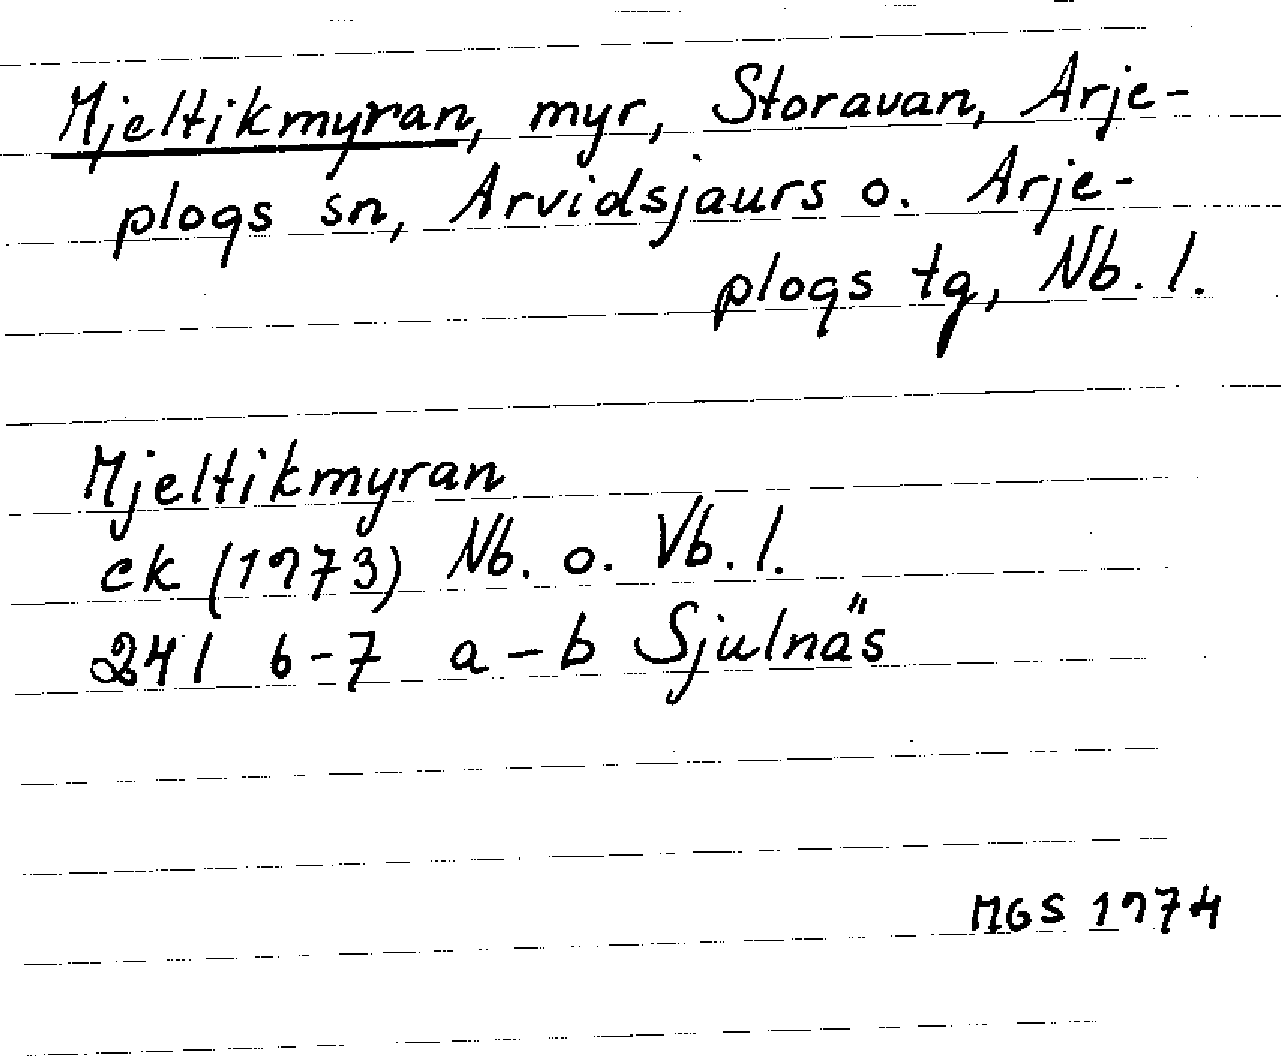 Mjeltikmyran, myr, Storavan, Arje-
plogs sn, Arvidsjaurs o. Arje-
plogs tg, Nb. l.
Mjeltikmyran
ek (1973) Nb. o. Vb. l.
241 6-7 a-b Sjulnäs
MGS 1974